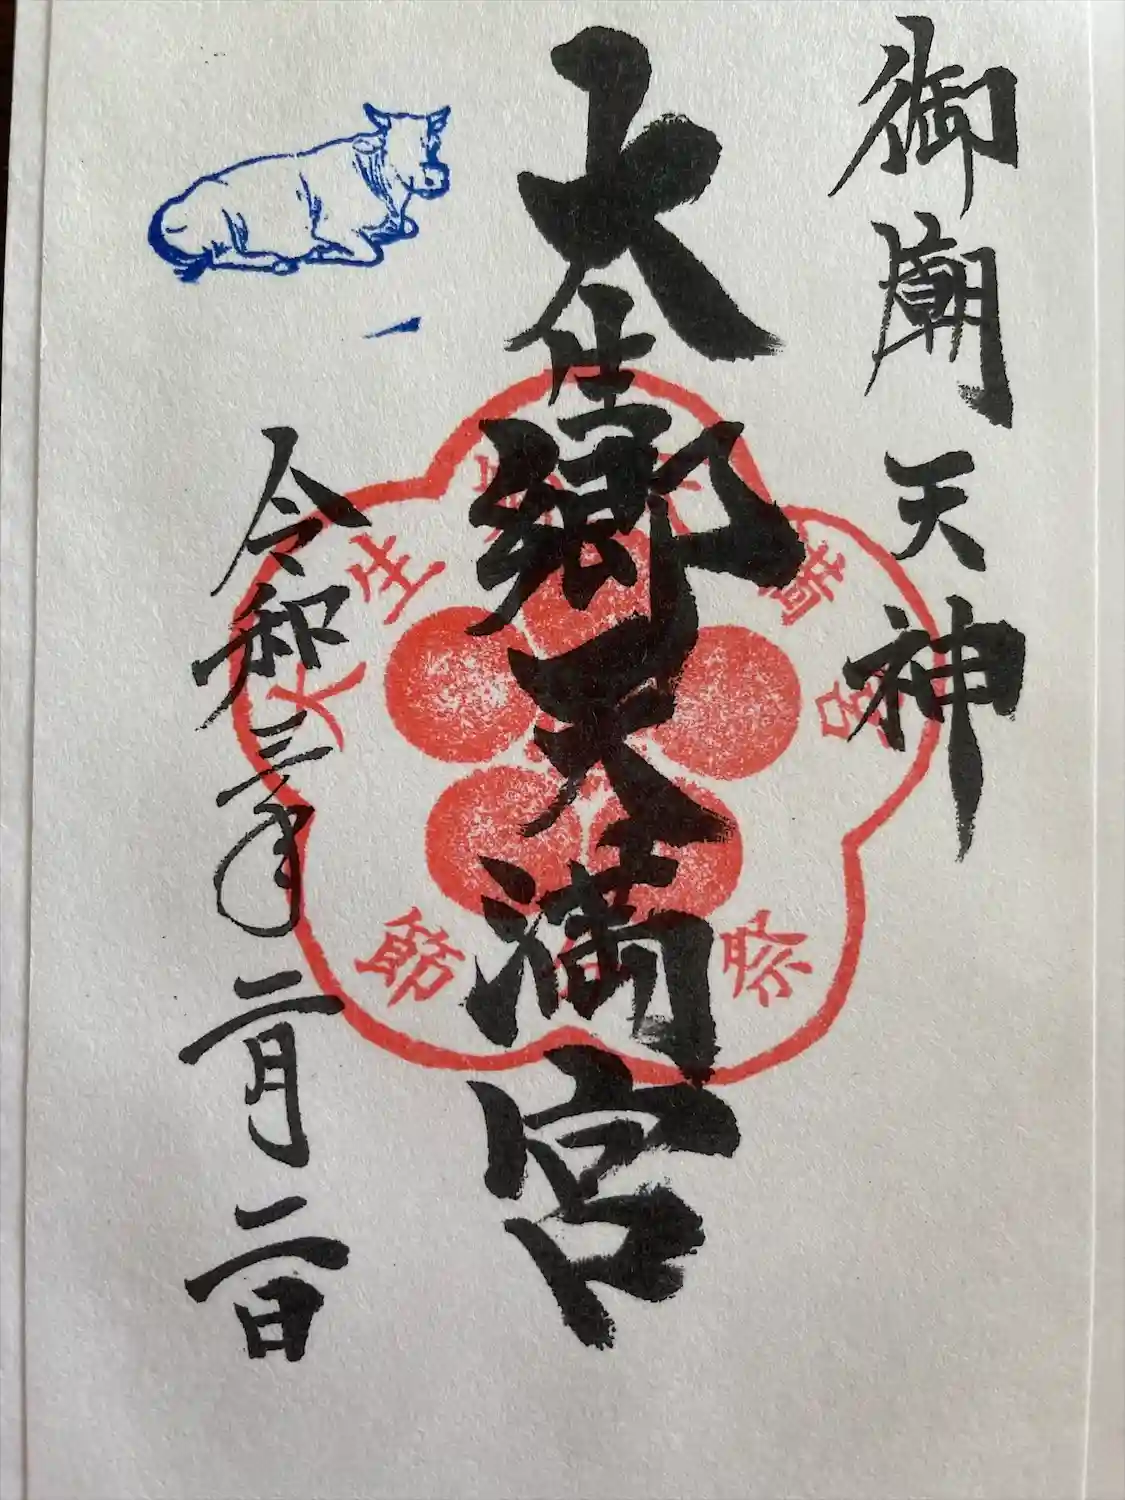 御廟天神
大生郷天満宮
令和三年二月二日
大生
節
祭